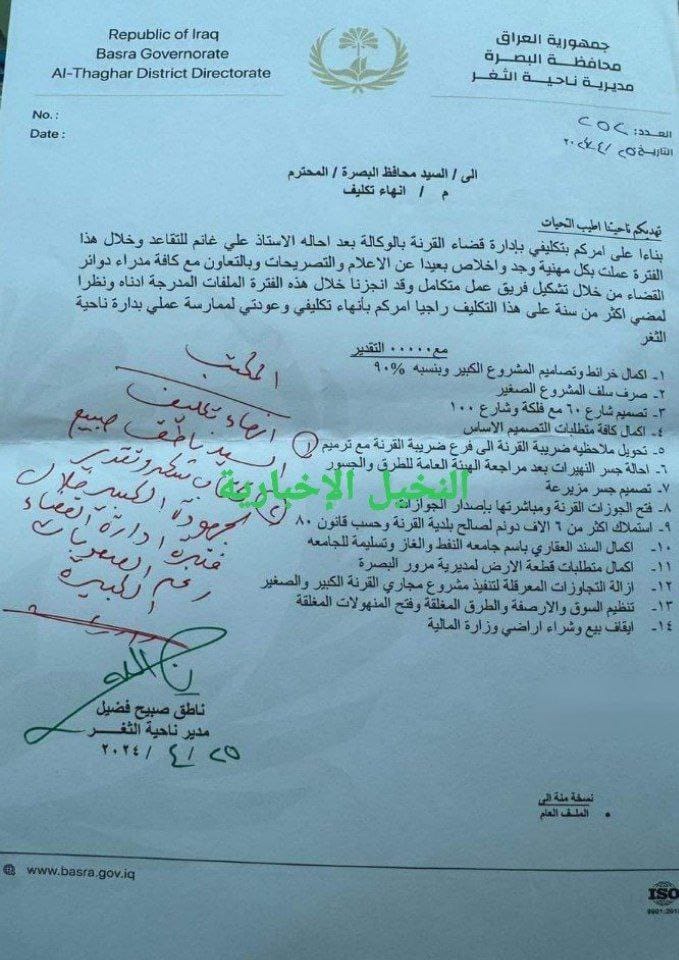 Republic of Iraq
Basra Governorate
Al-Thaghar District Directorate
جمهورية العراق
محافظة البصرة
مديرية ناحية الثغر
No. :
Date :
العدد: ٢٥٢
التاريخ ٢٥/٤/٢٠٢٤
الى / السيد محافظ البصرة / المحترم
م / انهاء تكليف
تهديكم ناحيتنا اطيب التحيات
بناءا على امركم بتكليفي بإدارة قضاء القرنة بالوكالة بعد احاله الاستاذ علي غانم للتقاعد وخلال هذا
الفترة عملت بكل مهنية وجد واخلاص بعيدا عن الاعلام والتصريحات وبالتعاون مع كافة مدراء دوائر
القضاء من خلال تشكيل فريق عمل متكامل وقد انجزنا خلال هذه الفترة الملفات المدرجة ادناه ونظرا
لمضي اكثر من سنة على هذا التكليف راجيا امركم بأنهاء تكليفي وعودتي لممارسة عملي بدارة ناحية
الثغر
مع٠٠٠٠٠ التقدير
١- اكمال خرائط وتصاميم المشروع الكبير وبنسبه ٩٠%
٢- صرف سلف المشروع الصغير
٣- تصميم شارع ٦٠ مع فلكة وشارع ١٠٠
٤- اكمال كافة متطلبات التصميم الاساس
٥- تحويل ملاحظيه ضريبة القرنة الى فرع ضريبة القرنة مع ترميم
٦- احالة جسر النهيرات بعد مراجعة الهيئة العامة للطرق والجسور
٧- تصميم جسر مزيرعة
٨- فتح الجوزات القرنة ومباشرتها بإصدار الجوازات
٩- استملاك اكثر من ٦ الاف دونم لصالح بلدية القرنة وحسب قانون ٨٠
١٠- اكمال السند العقاري باسم جامعه النفط والغاز وتسليمة للجامعه
١١- اكمال متطلبات قطعة الارض لمديرية مرور البصرة
١٢- ازالة التجاوزات المعرقلة لتنفيذ مشروع مجاري القرنة الكبير والصغير
١٣- تنظيم السوق والارصفة والطرق المغلقة وفتح المنهولات المغلقة
١٤- ايقاف بيع وشراء اراضي وزارة المالية
المكتب
١ انهاء تكليف
السيد ناطق صبيح
٢ كتاب شكر وتقدير
لجهودة الكبير خلال
فترة ادارة القضاء
رغم الصعوبات
الكبيرة
النخيل الإخبارية
ناطق صبيح فضيل
مدير ناحية الثغر
٢٥/٤/٢٠٢٤
نسخة منة الى
• الملف العام
www.basra.gov.iq
ISO